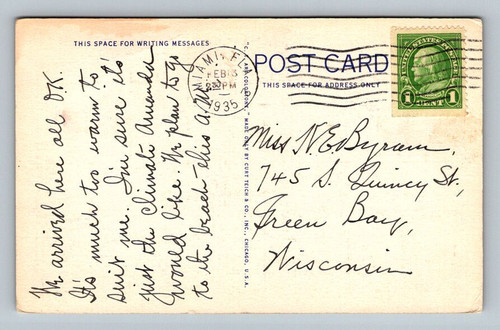 THIS SPACE FOR WRITING MESSAGES
We arrived here all O.K.
It's much too warm to
suit me. I'm sure its'
just the climate Amanda
would like. We plan to go
to the beach this a.m.
"C. T. ART-COLORTONE" MADE ONLY BY CURT TEICH & CO., INC., CHICAGO, U.S.A.
MIAMI, FLA.
FEB
PM
1935
POST CARD
THIS SPACE FOR ADDRESS ONLY
UNITED STATES POSTAGE
1 CENT 1
Miss N.E. Byram,
745 S. Quincy St.,
Green Bay,
Wisconsin